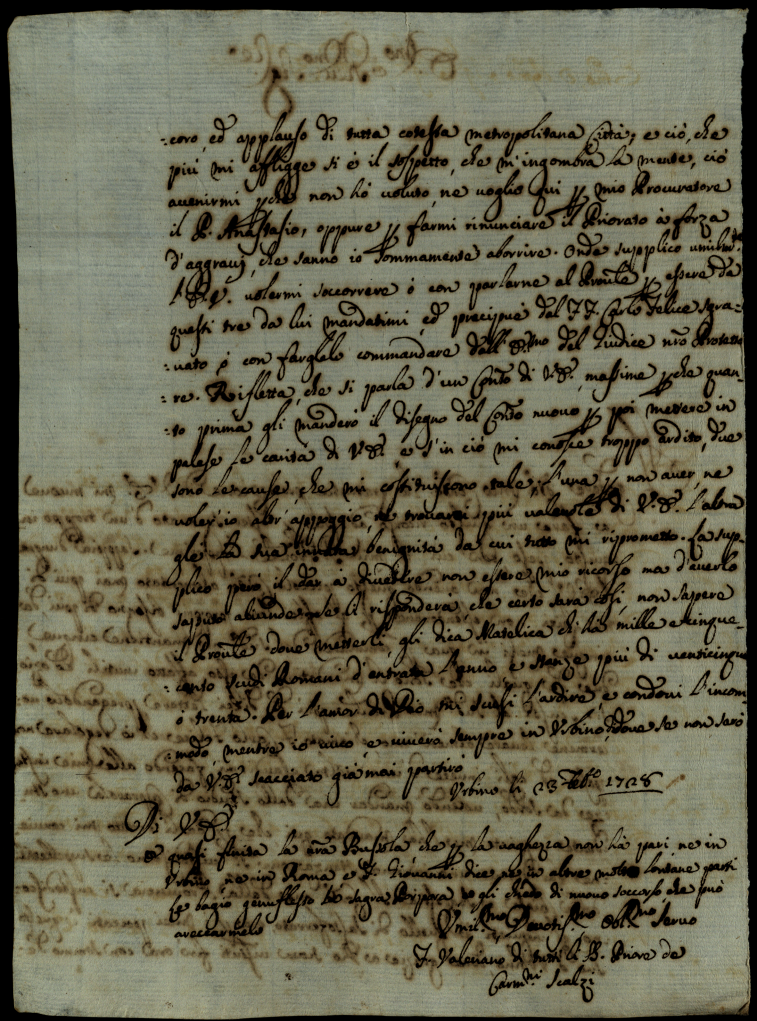 -coro, ed applauso di tutta cotesta metropolitana Città; e ciò, che
più mi affligge si è il sospetto, che m'ingombra la mente, ciò
avenirmi pche non hò voluto, ne voglio qui p mio Procuratore
il P. Anastasio, oppure p farmi rinunciare il Priorato à forza
d'aggravij, che sanno io sommamente aborrire. Onde supplico umilm.te
l'E.V. volermi soccorrere ò con parlarne al Prouãle p essere da
questi tre da lui mandatimi, ed precipue dal Carlo Felice sgra-
-uato, ò con farglele commandare dall' del Giudice nro Protetto-
-re. Rifletta, che si parla d'un Conto di V.E. massime pche quan-
-to prima gli manderò il disegno del Conto nuovo p poi mettere in
palese le carità di V.E. e s'in ciò mi conosce troppo ardito, due
sono le cause, che mi costituiscono tale; l'una p non aver, ne
voler io altr'appoggio, ne trovarsi più valevole di V.E. l'altra
glè la sua innata benignità da cui tutto mi riprometto. La sup-
plico però il dar à divedere non essere mio ricorso ma d'averlo
saputo aliunde, se li risponderà, che certo sarà così, non sapere
il Prouãle dove metterli, gli dica Matelica ch'hà mille e cinque-
-cento scudi Romani d'entrata l'anno e stanze più di venticinque
ò trenta. Per l'amor di Dio mi scusi l'ardire, e condoni l'incom-
-modo, mentre io vivo, e viverò sempre in Urbino, dove se non sarò
da V.E. scacciato già mai partirò
Urbino li 23 Feb.o 1728
Di V.E.
è quasi finita la Bussola che p la vaghezza non hà pari ne in
Urbino ne in Roma e F. Giovanni dice ne in altre molte lontane parti
Le bagio genuflesso la sagra Porpora, e gli chiedo di nuovo soccorso che può
areccarmelo
Umil.mo Devotis.mo Obl.mo Servo
F. Valeriano di tutti li S. Priore de
Carm.ni Scalzi